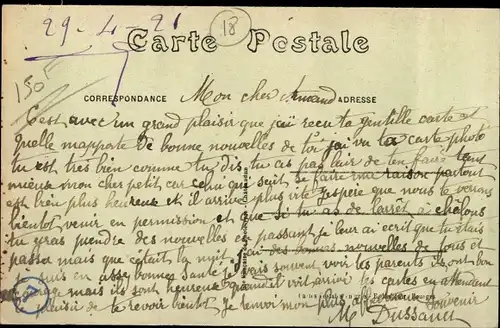 29-4-21
18
Carte Postale
150F
CORRESPONDANCE Mon cher Armand ADRESSE
C'est avec un grand plaisir que j'ai recu ta gentille carte et
quelle mapporte de bonne nouvelles de toi j'ai vu ta carte photo
tu est très bien comme tu dis, tu as pas lair de ten faire tant
mieux mon cher petit car celui qui sait se faire une raison partout
est bien plus heureux et il arrive plus vite j'espère que nous te verons
bientot venir en permission et que si tu as de larrêt a châlons
tu iras prendre des nouvelles en passant je leur ai ecrit que tu étais
passé mais que cetait la nuit j'ai des bonnes nouvelles de tous et
je suis en assez bonne santé je vais souvent voir les parents ils ont bon
courage mais ils sont heureux quand il voit arrivé tes cartes en attendant
plaisir de te revoir bientot je t'envoi mon plus aff souvenir
M Dussauci